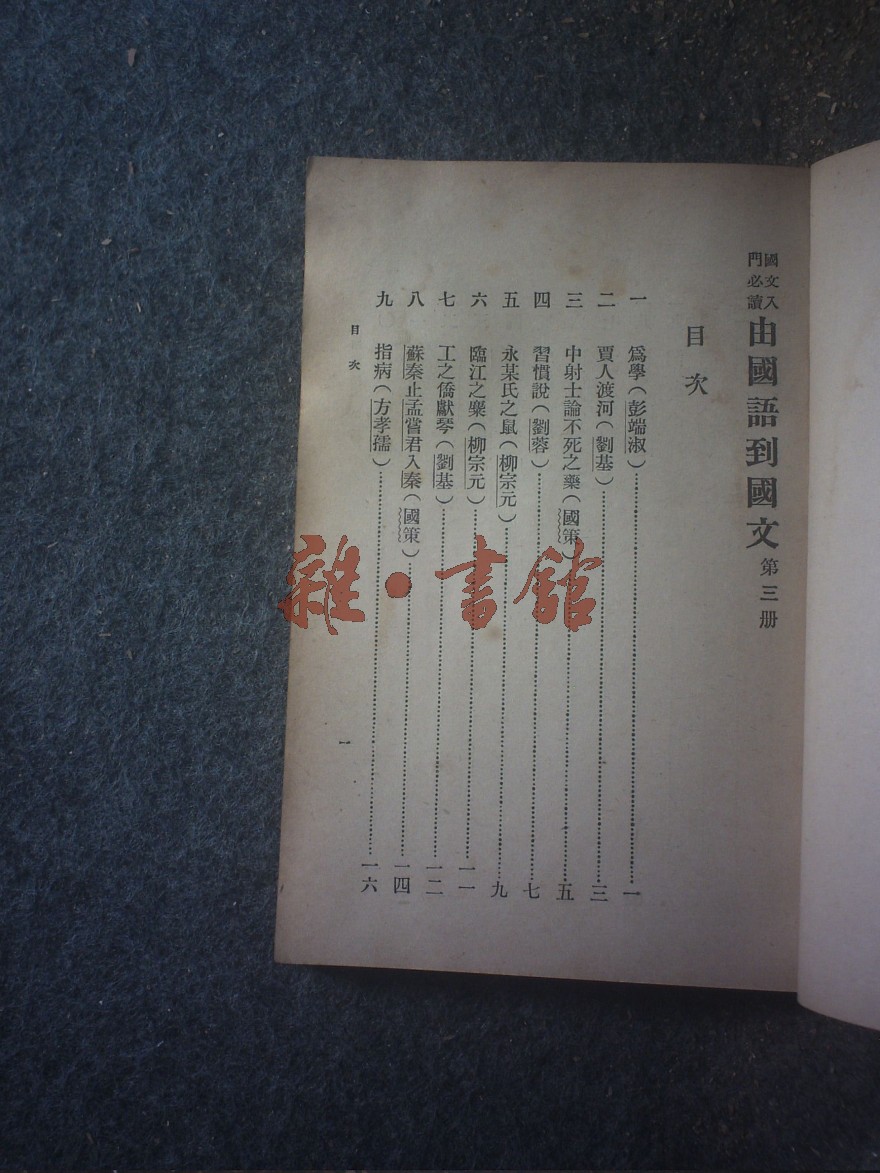 國文入
門必讀
由國語到國文 第三册
目次
一 爲學(彭端淑)⋯⋯一
二 賈人渡河(劉基)⋯⋯三
三 中射士論不死之藥(國策)⋯⋯五
四 習慣說(劉蓉)⋯⋯七
五 永某氏之鼠(柳宗元)⋯⋯九
六 臨江之麋(柳宗元)⋯⋯一一
七 工之僑獻琴(劉基)⋯⋯一二
八 蘇秦止孟嘗君入秦(國策)⋯⋯一四
九 指病(方孝孺)⋯⋯一六
目次
一
雜·書館